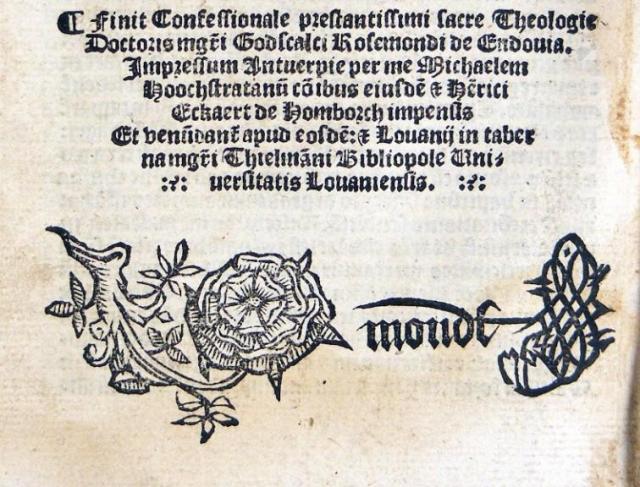 ¶ Finit Confessionale prestantissimi sacre Theologie
Doctoris mgr̄i Godscalci Rosemondi de Endouia.
Impressum Antuerpie per me Michaelem
Hoochstratanū cōibus eiusdē & Hērici
Eckaert de Homborch impensis
Et venūdant̄ apud eosdē: & Louanij in taber
na mgr̄i Thielmāni Bibliopole Uni-
uersitatis Louaniensis.
mondt